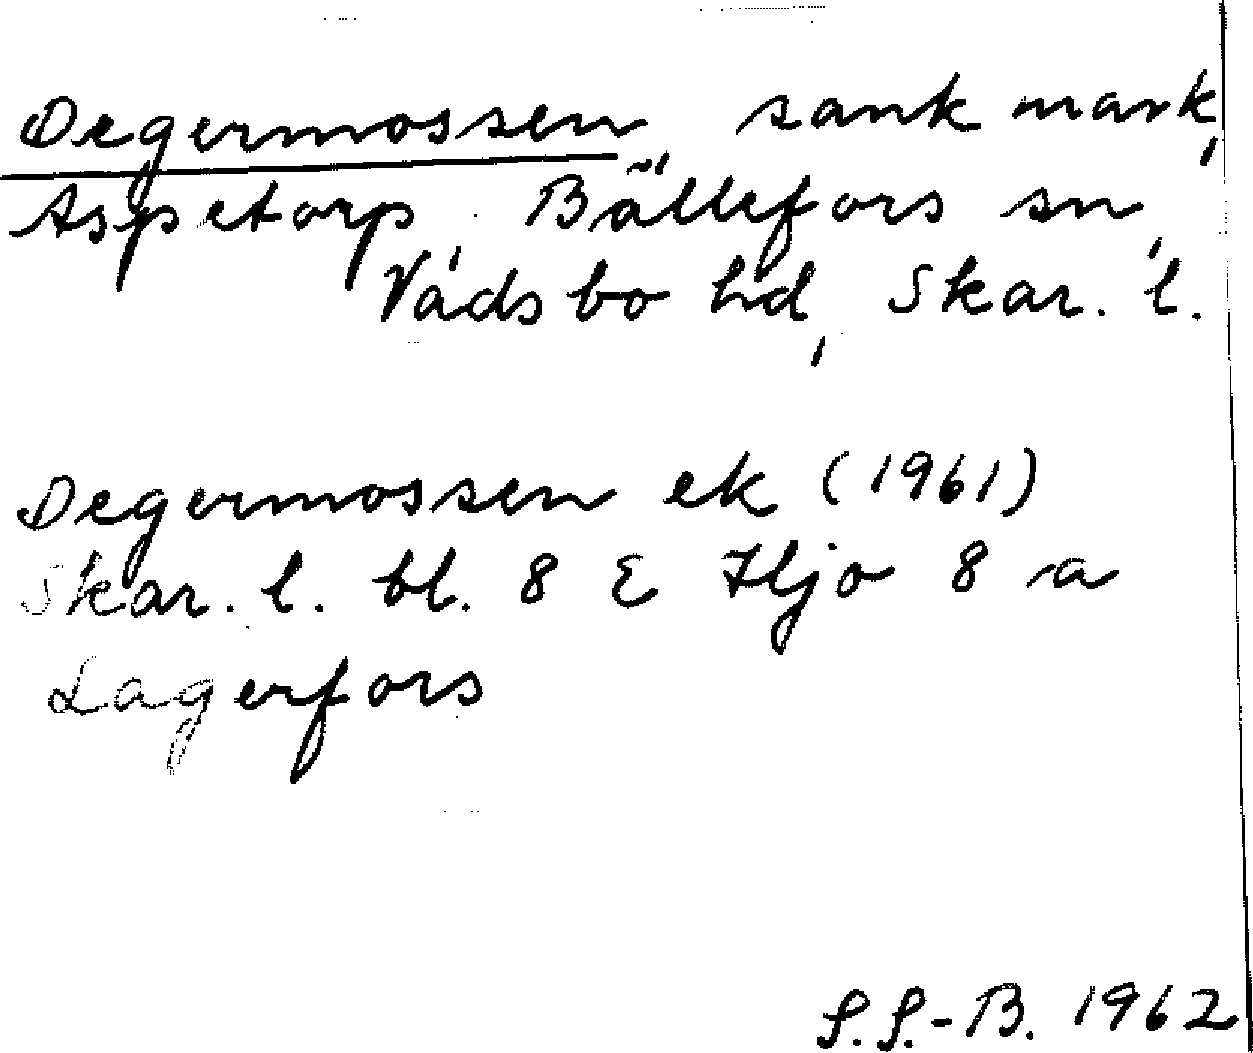 Degermossen, sank mark,
Aspetorp, Bällefors sn,
Vadsbo hd, Skar. l.
Degermossen ek (1961)
Skar. l. bl. 8 E Hjo 8 a
Lagerfors
S.S.-B. 1962